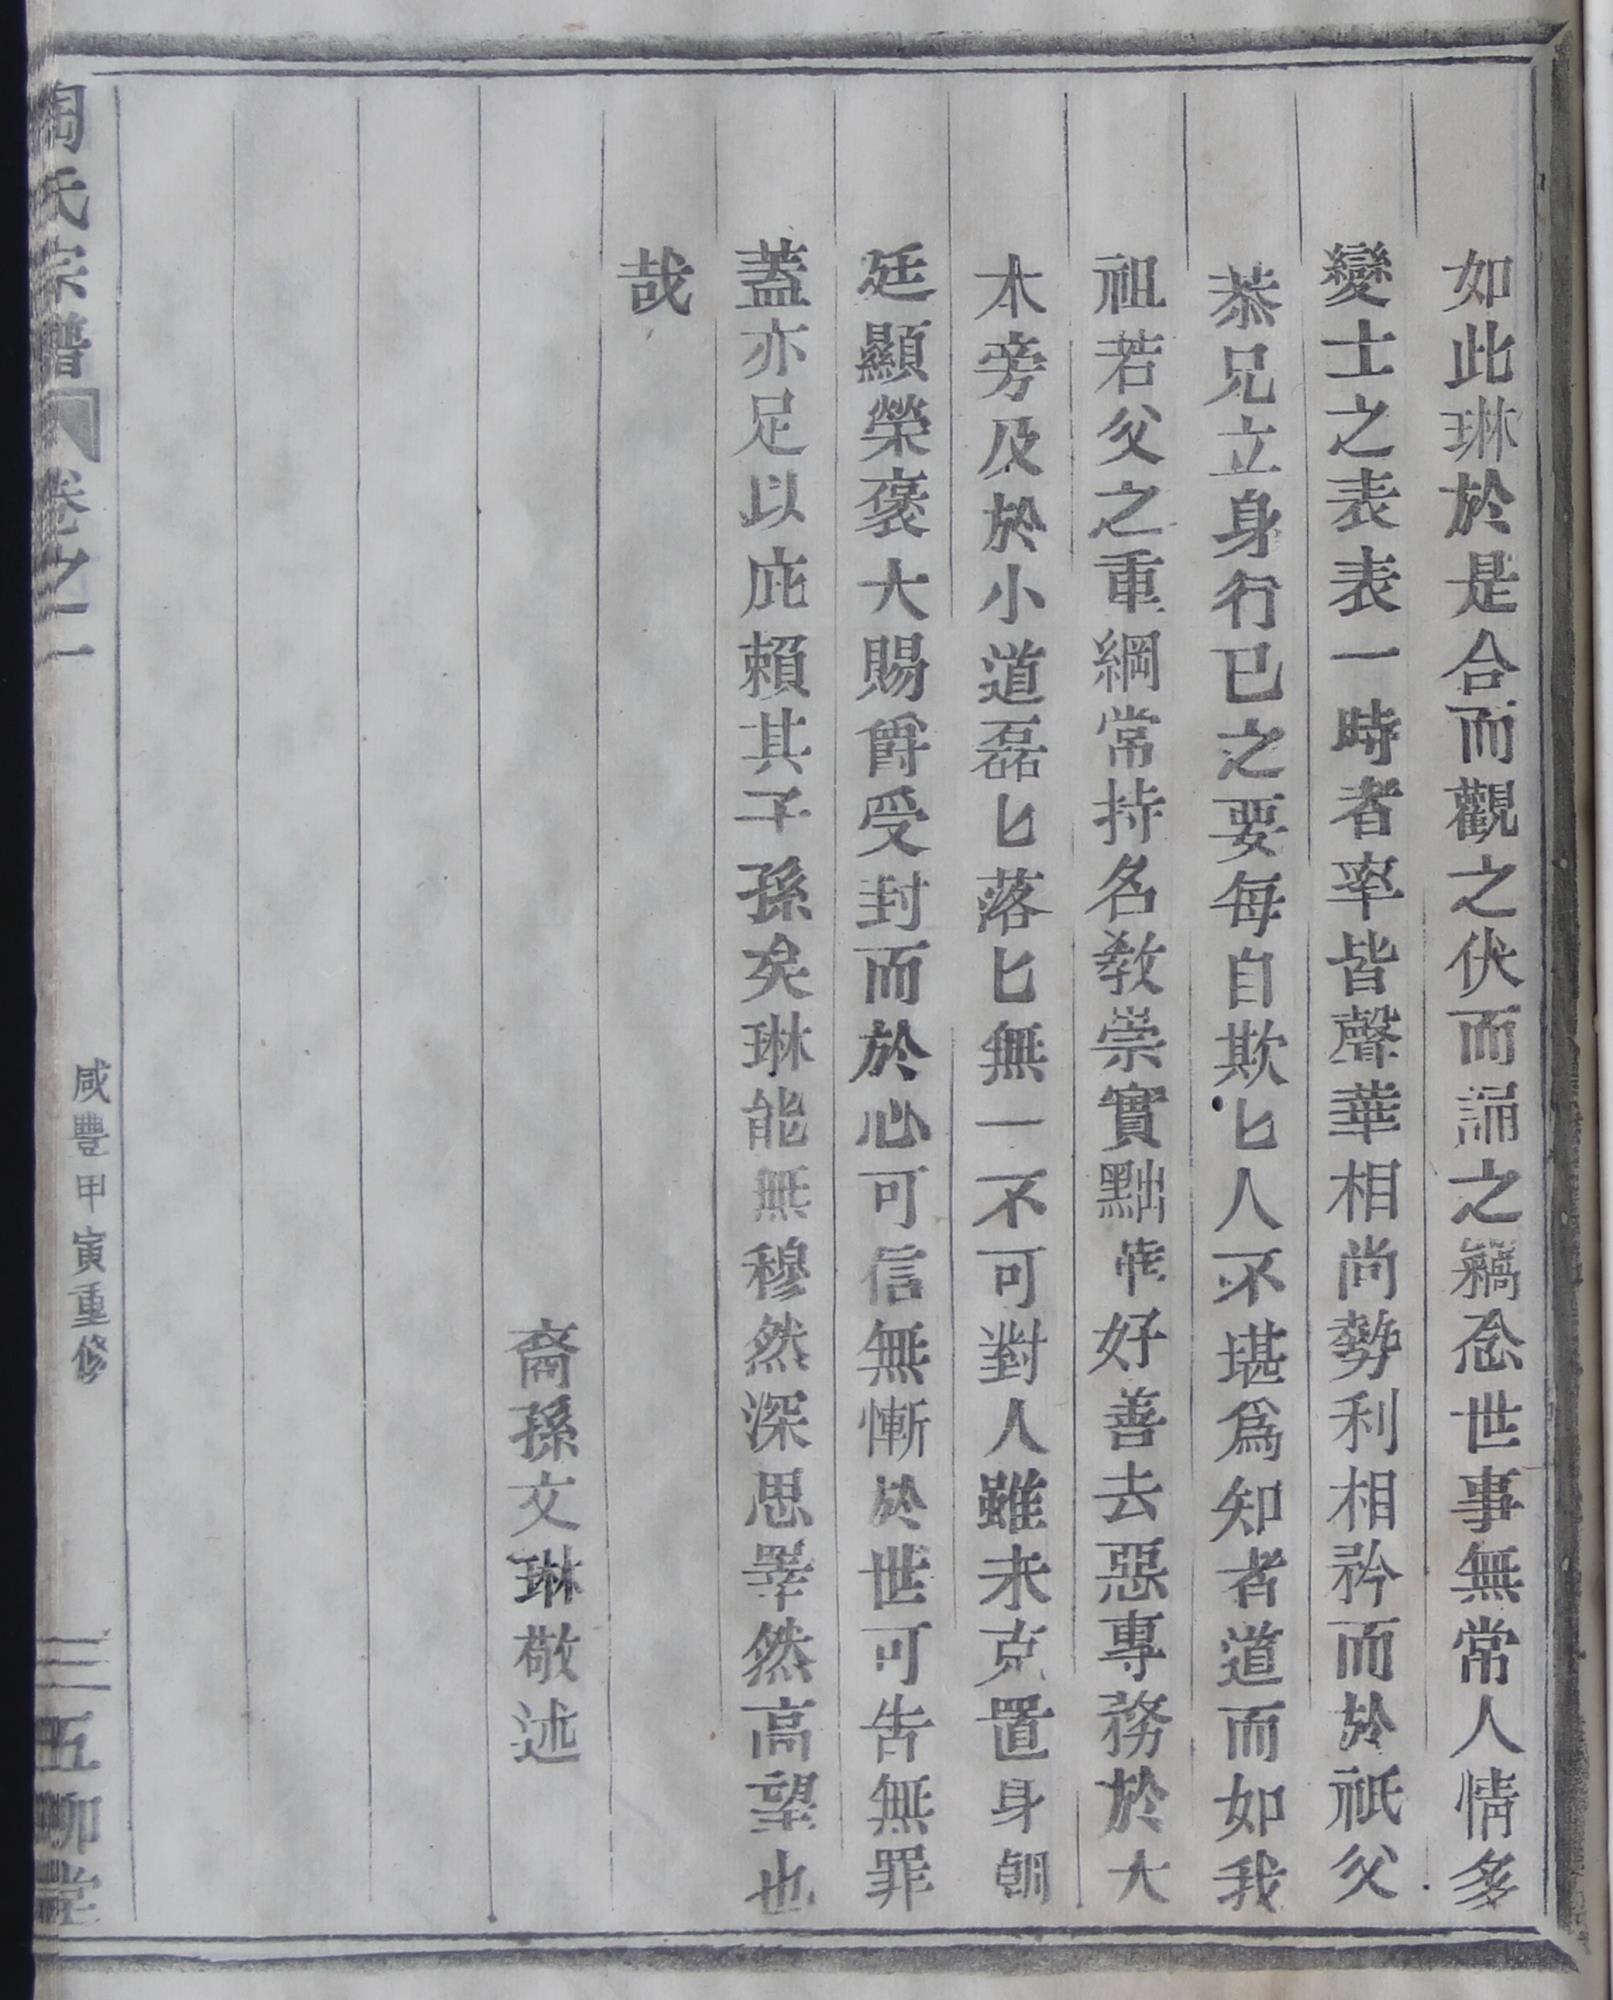 如此琳於是合而觀之伏而誦之竊念世事無常人情多
變士之表表一時者率皆聲華相尚勢利相矜而於祇父
恭兄立身行已之要每自欺匕人不堪爲知者道而如我
祖若父之重綱常持名教崇實黜虛好善去惡專務於大
本旁及於小道磊匕落匕無一不可對人雖未克置身朝
廷顯榮褒大賜爵受封而於心可信無慚於世可告無罪
蓋亦足以庇賴其子孫矣琳能無穆然深思睪然高望也
哉
裔孫文琳敬述
陶氏宗譜 卷之二 三 五柳堂
咸豐甲寅重修